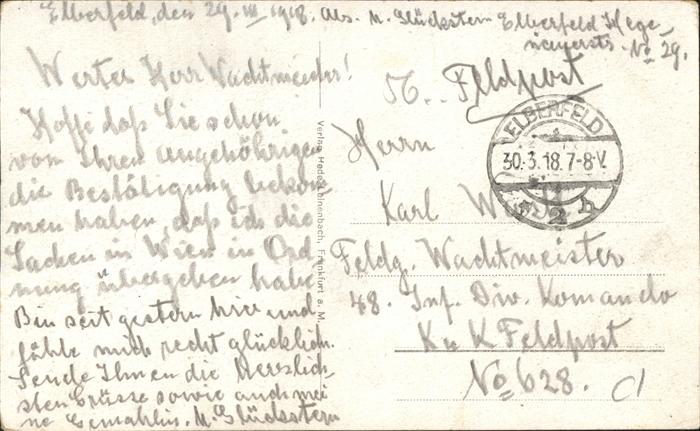 Elberfeld, den 29. III 1918. Abs. M. Glückstern Elberfeld Hege-
meyerstr. No 29.
Werter Herr Wachtmeister!
Hoffe daß Sie schon
von Ihren Angehörigen
die Bestätigung bekom
men haben, daß ich die
Sachen in Wien in Ord
nung übergeben habe
Bin seit gestern hier und
fühle mich recht glücklich.
Sende Ihnen die Herzlich
sten Grüsse sowie auch mei
ne Gemahlin. M. Glückstern
Frankfurt a. M.
Feldpost
ELBERFELD
30.3.18.7-8V.
2
Herrn
Karl
Feldg. Wachtmeister
48. Inf. Div. Komando
K u K Feldpost
No 628.